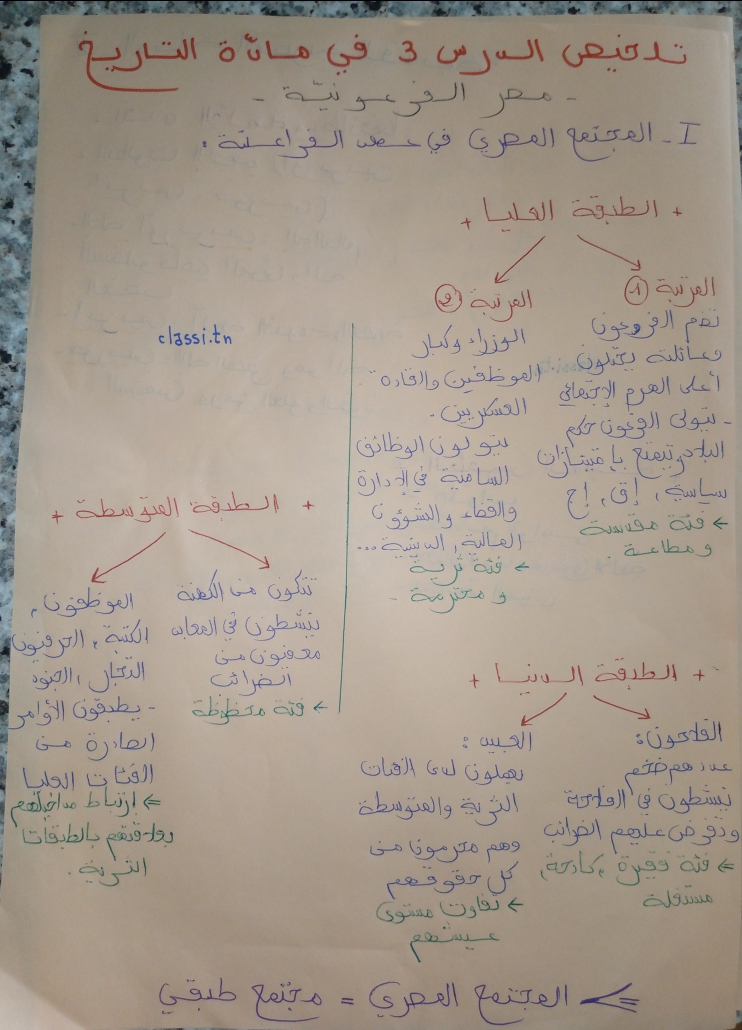 تلخيص الدرس 3 في مادّة التاريخ
- مصر الفرعونيّة -
I - المجتمع المصري في عصر الفراعنة :
+ الطبقة العليا +
المرتبة 1
تضم الفرعون
وعائلته يحتلون
أعلى الهرم الإجتماعي
- يتولى الفرعون حكم
البلاد ويتمتع بامتيازات
سياسية, إق, إج
← فئة مقدسة
ومطاعة.
المرتبة 2
الوزراء وكبار
الموظفين والقادة
العسكريين -
يتولون الوظائف
السامية في الإدارة
والقضاء والشؤون
المالية, الدينية ...
← فئة ثرية
ومحترمة -
classi.tn
+ الطبقة المتوسطة +
تتكون من الكهنة
ينشطون في المعابد
معفيون من
الضرائب
← فئة محظوظة
الموظفون,
الكتبة, الحرفيون
التجار, الجنود
- يطبقون الأوامر
الصادرة من
الفئات العليا
⇐ ارتباط مداخيلهم
بالطبقات
الثرية.
+ الطبقة الدنيا +
الفلاحون:
عددهم ضخم
ينشطون في الفلاحة
وتفرض عليهم الضرائب
← فئة فقيرة, كادحة,
مستغلة
العبيد:
يعملون لدى الفئات
الثرية والمتوسطة
وهم محرمون من
كل حقوقهم
← تفاوت مستوى
عيشهم
⇐ المجتمع المصري = مجتمع طبقي